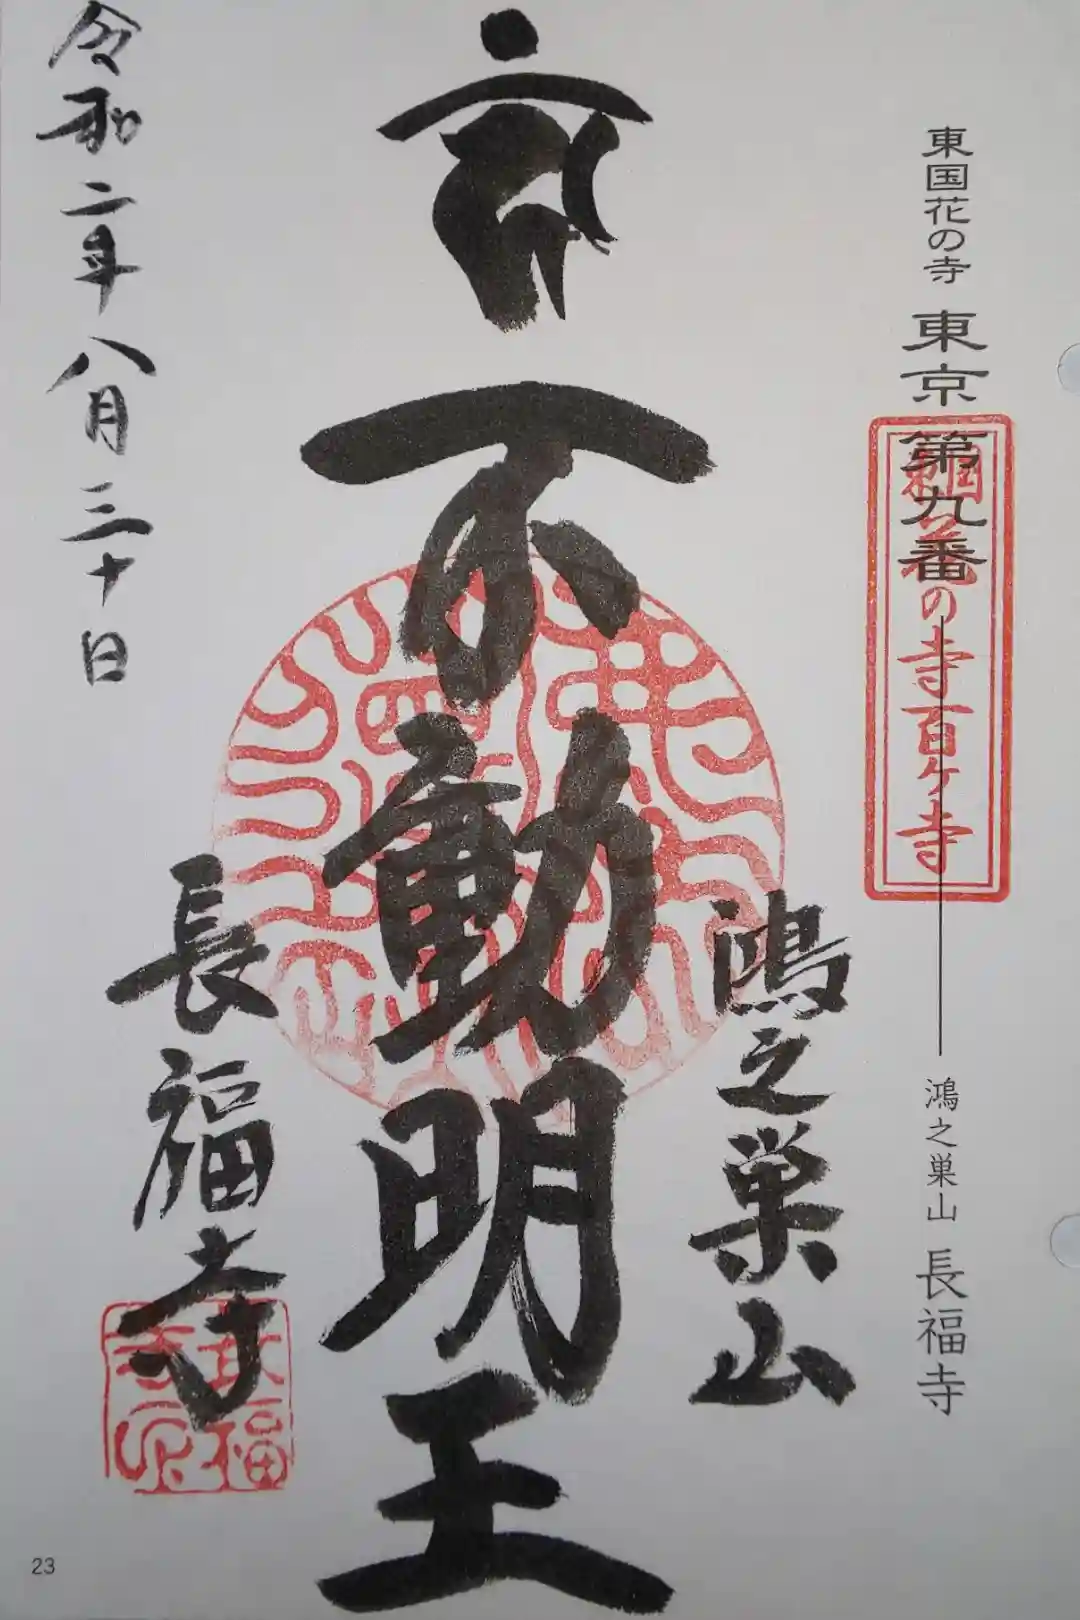 東国花の寺 東京 第九番 鴻之巣山 長福寺
東国花の寺百ヶ寺
鴻之巣山
不動明王
長福寺
令和二年八月三十日
23